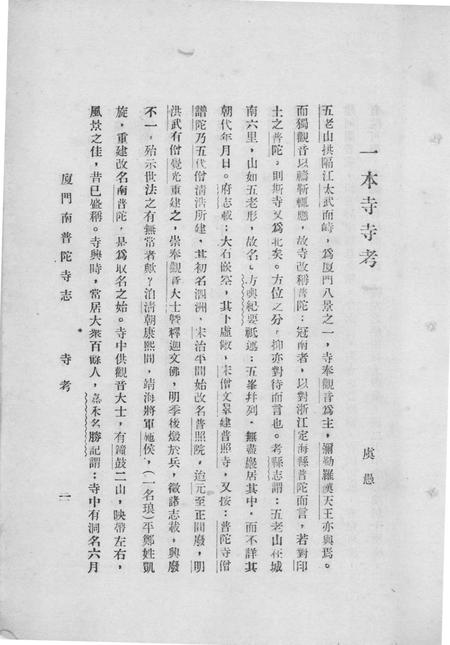 一本寺寺考
虞愚
五老山拱隔江太武而峙，爲廈門八景之一，寺奉觀音爲主，彌勒羅漢天王亦與焉。
而獨觀音以禱靳輒應，故寺改稱普陀；冠南者，以對浙江定海縣普陀而言，若對印
土之普陀，則斯寺又爲北矣。方位之分，抑亦對待而言也。考縣志謂：五老山在城
南六里，山如五老形，故名。方輿紀要祗述：五峯幷列，無盡巖居其中，而不詳其
朝代年月日。府志載：大石嵌空，其下虛敞，宋僧文翠建普照寺，又按：普陀寺僧
譜陀乃五代僧淸浩所建，其初名泗洲，宋治平間始改名普照院，迨元至正間廢，明
洪武有僧覺光重建之，崇奉觀音大士曁釋迦文佛，明季後燬於兵，徵諸志載，興廢
不一，殆示世法之有無常者歟？洎淸朝康熙間，靖海將軍施侯，（一名琅）平鄭姓凱
旋，重建改名南普陀，是爲取名之始。寺中供觀音大士，有鐘鼓二山，映帶左右，
風景之佳，昔已盛稱。寺興時，常居大衆百餘人，嘉禾名勝記謂：寺中有洞名六月
廈門南普陀寺志　寺考　一